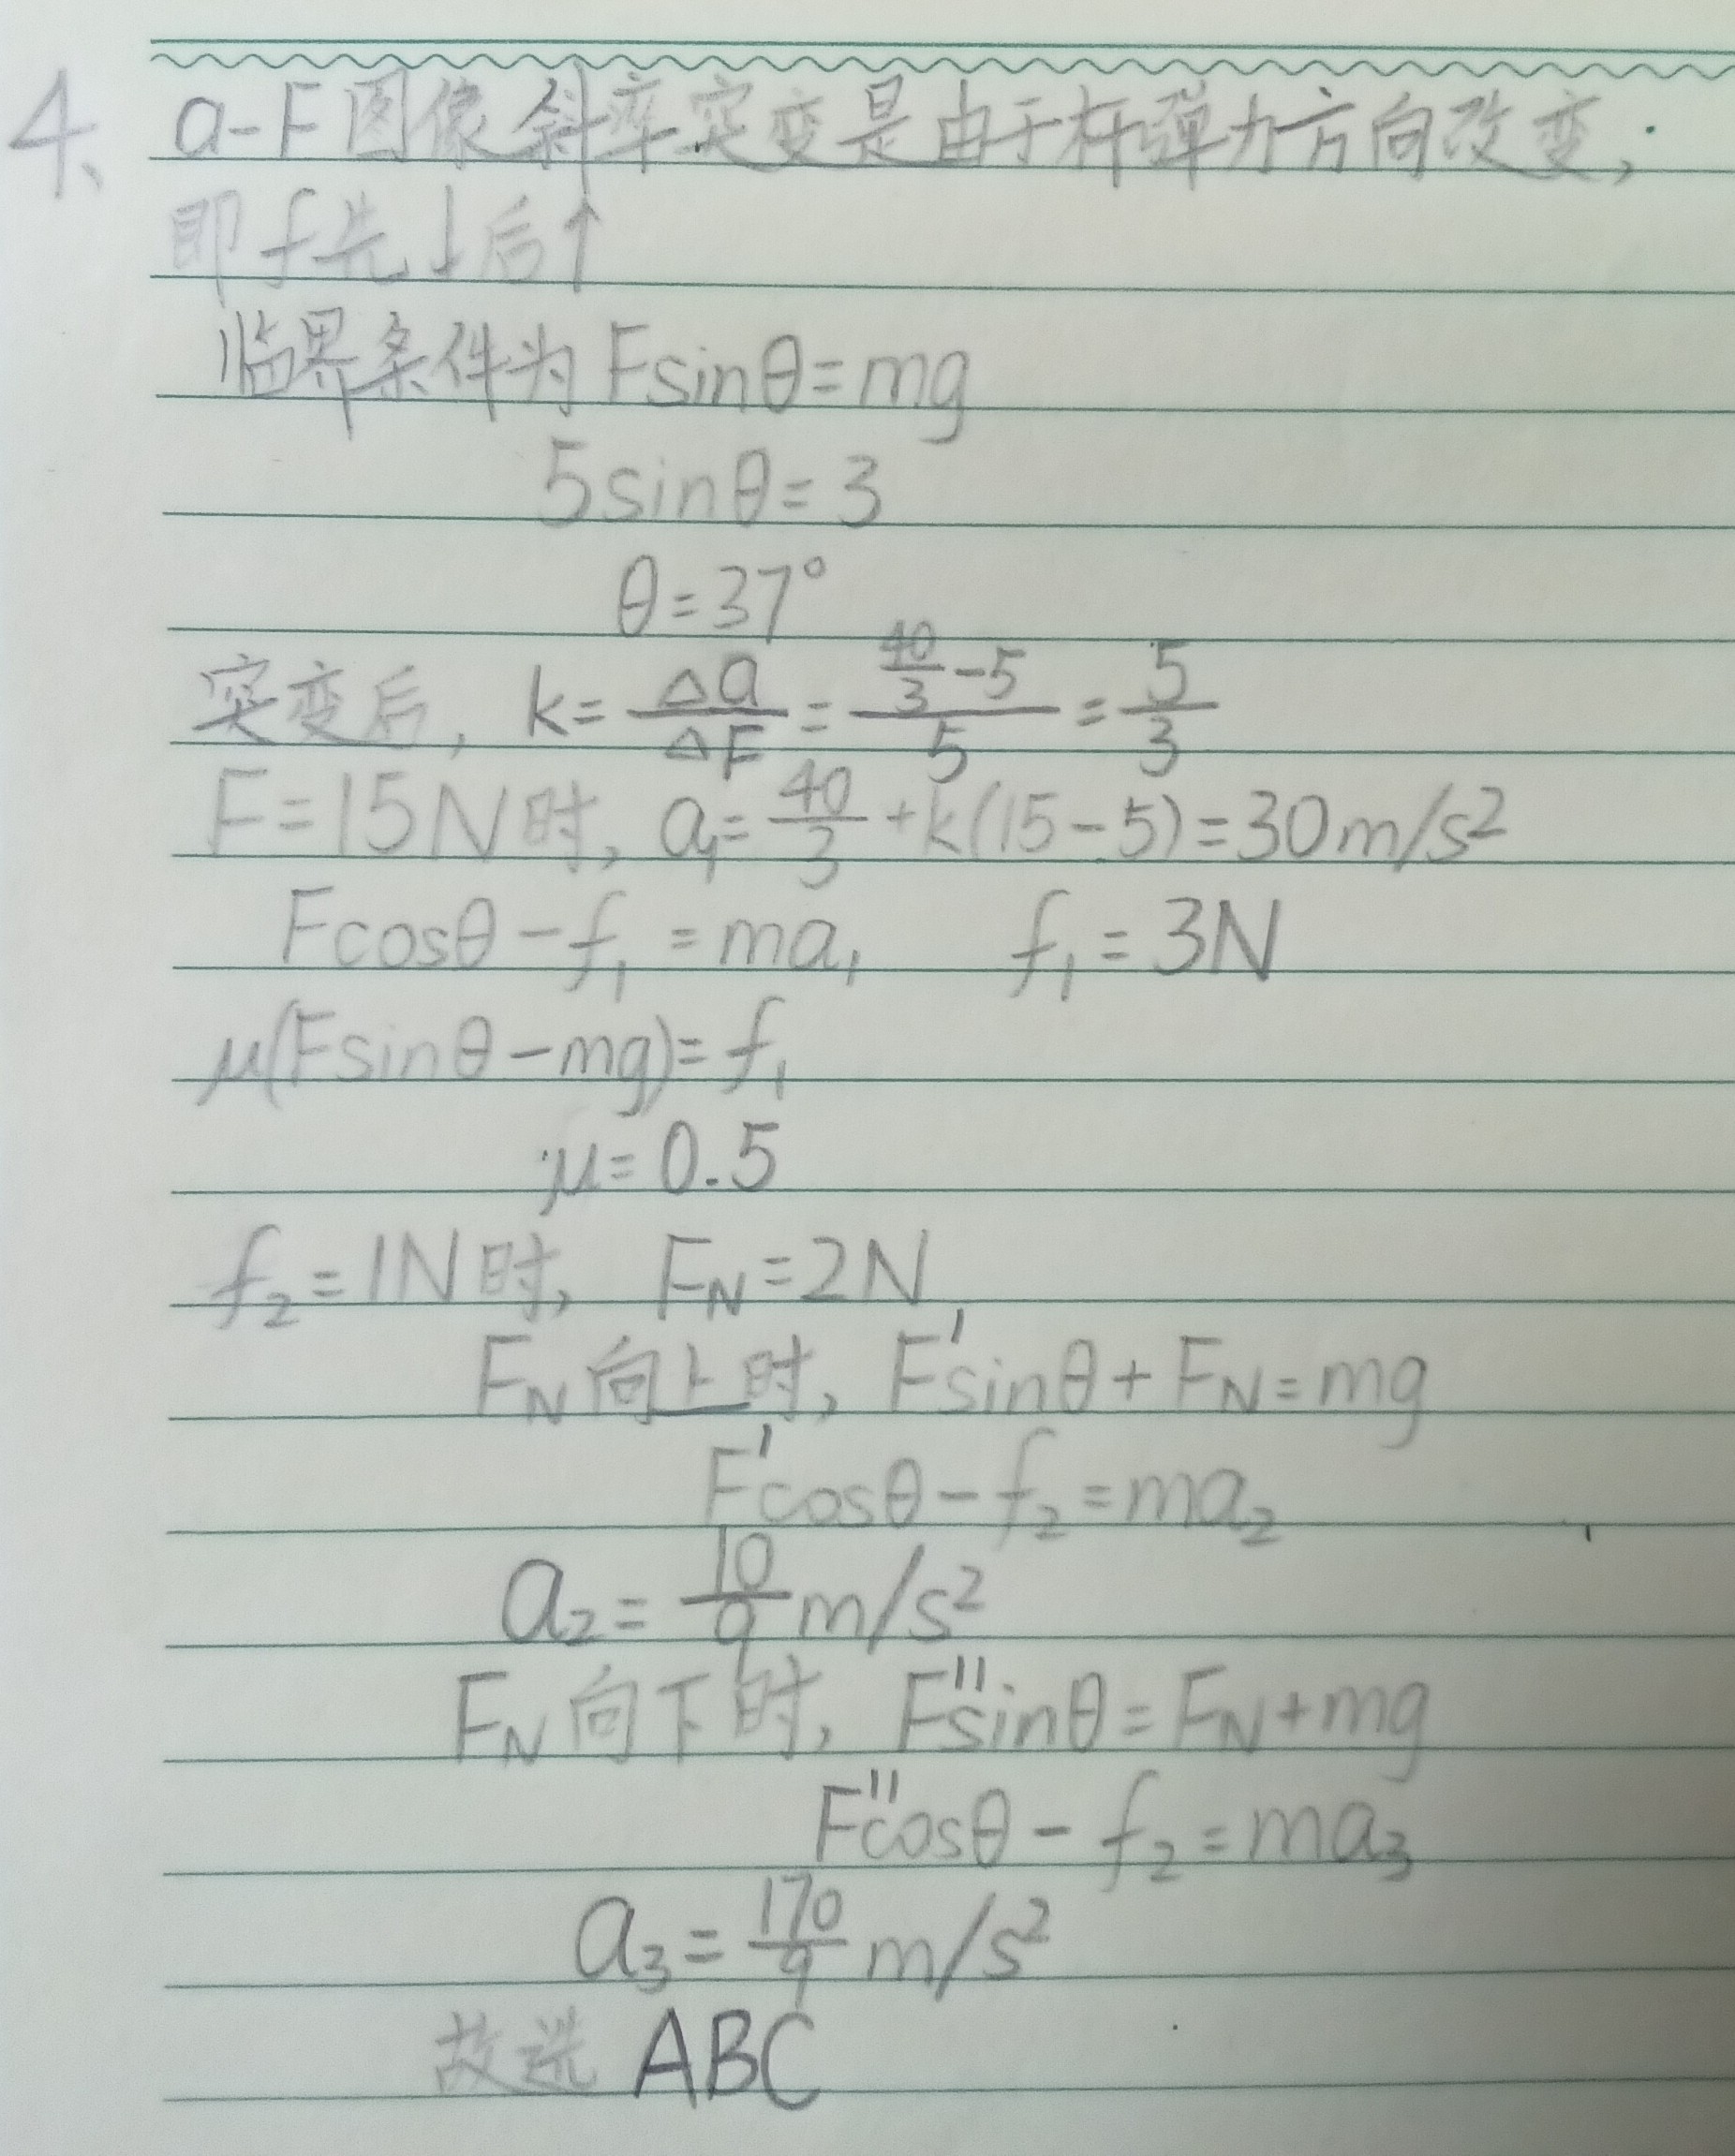 4、a-F图像斜率突变是由于杆弹力方向改变,
即f先↓后↑
临界条件为Fsinθ=mg
5sinθ=3
θ=37°
突变后, k=Δa/ΔF=(40/3-5)/5=5/3
F=15N时, a₁=40/3+k(15-5)=30m/s²
Fcosθ-f₁=ma₁ f₁=3N
μ(Fsinθ-mg)=f₁
μ=0.5
f₂=1N时, F_N=2N
F_N向上时, F'sinθ+F_N=mg
F'cosθ-f₂=ma₂
a₂=10/9 m/s²
F_N向下时, F''sinθ=F_N+mg
F''cosθ-f₂=ma₃
a₃=170/9 m/s²
故选 ABC